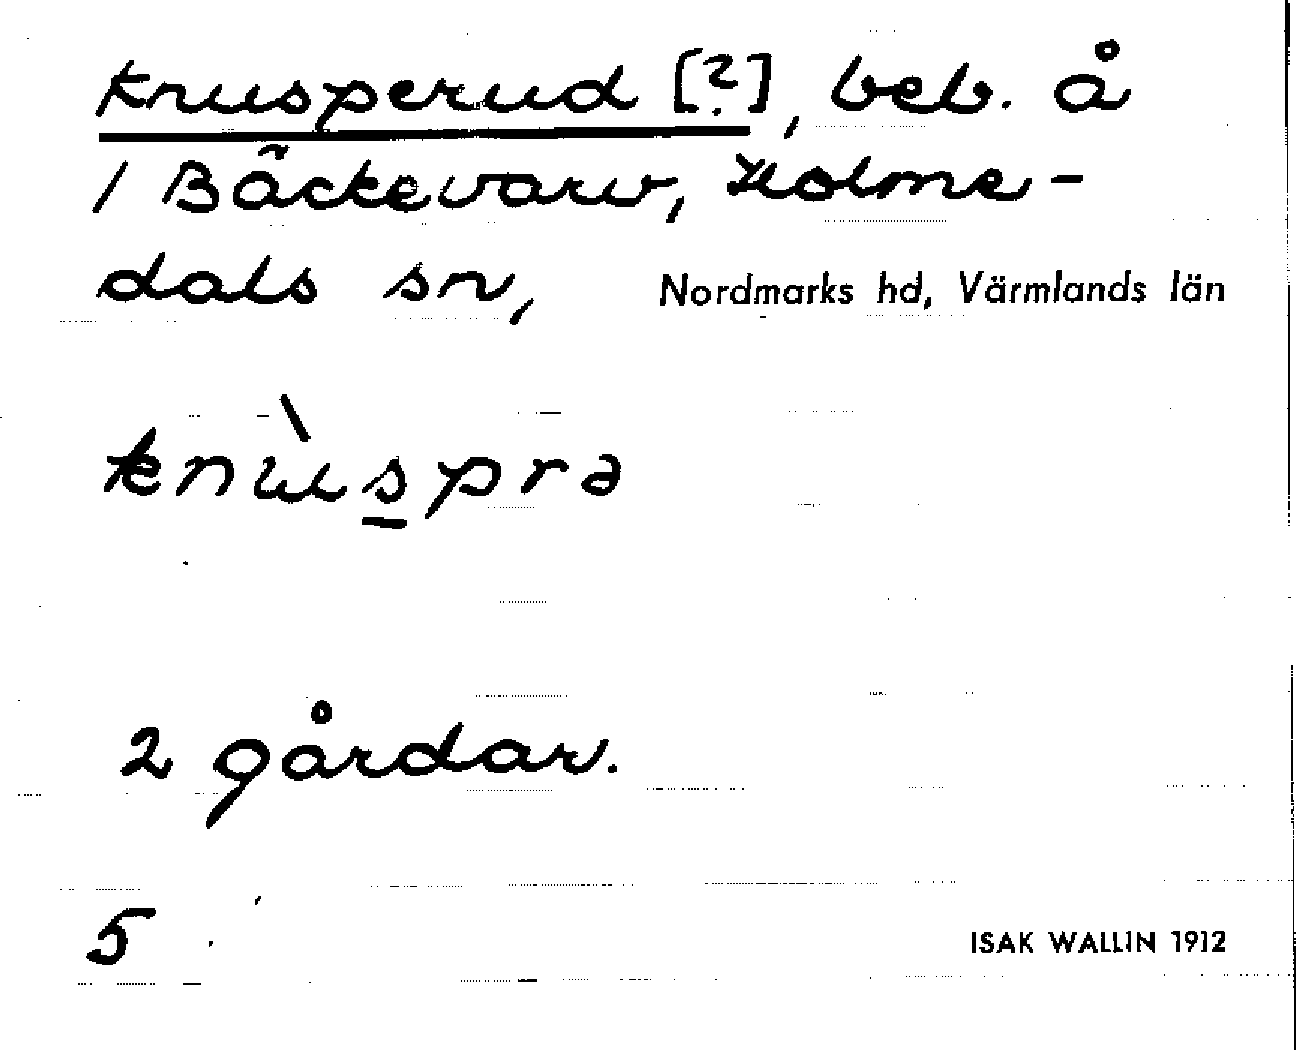 Knusperud [?], beb. å
1 Bäckevarv, Holme-
dals sn, Nordmarks hd, Värmlands län
knùspra
2 gårdar.
5 ISAK WALLIN 1912